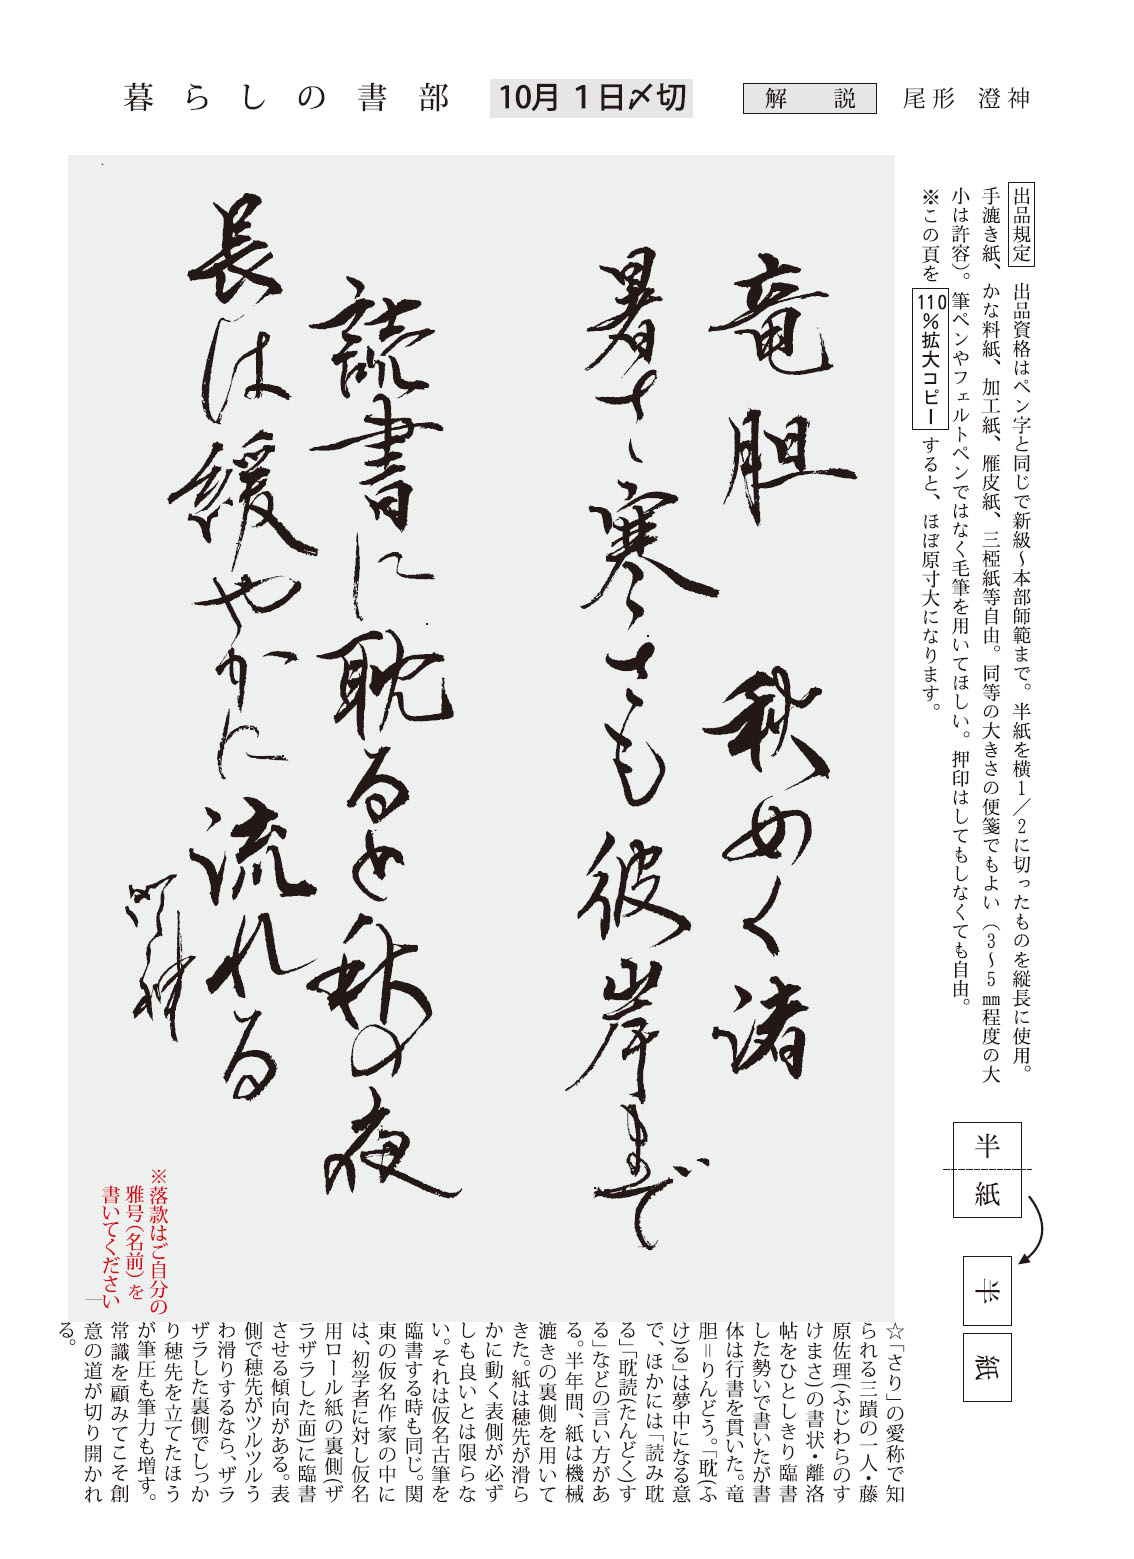 暮らしの書部
10月1日〆切
解 説
尾形 澄神
出品規定 出品資格はペン字と同じで新級～本部師範まで。半紙を横1／2に切ったものを縦長に使用。
手漉き紙、かな料紙、加工紙、雁皮紙、三椏紙等自由。同等の大きさの便箋でもよい（3～5㎜程度の大
小は許容）。筆ペンやフェルトペンではなく毛筆を用いてほしい。押印はしてもしなくても自由。
※この頁を110％拡大コピーすると、ほぼ原寸大になります。
半
紙
半
紙
竜胆 秋めく諸
暑さ寒さも彼岸まで
読書に耽ると秋の夜
長は緩やかに流れる
澄神
※落款はご自分の
雅号（名前）を
書いてください
☆「さり」の愛称で知
られる三蹟の一人・藤
原佐理（ふじわらのす
けまさ）の書状・離洛
帖をひとしきり臨書
した勢いで書いたが書
体は行書を貫いた。竜
胆＝りんどう。「耽（ふ
け）る」は夢中になる意
で、ほかには「読み耽
る」「耽読（たんどく）す
る」などの言い方があ
る。半年間、紙は機械
漉きの裏側を用いて
きた。紙は穂先が滑ら
かに動く表側が必ず
しも良いとは限らな
い。それは仮名古筆を
臨書する時も同じ。関
東の仮名作家の中に
は、初学者に対し仮名
用ロール紙の裏側（ザ
ラザラした面）に臨書
させる傾向がある。表
側で穂先がツルツルう
わ滑りするなら、ザラ
ザラした裏側でしっか
り穂先を立てたほう
が筆圧も筆力も増す。
常識を顧みてこそ創
意の道が切り開かれ
る。